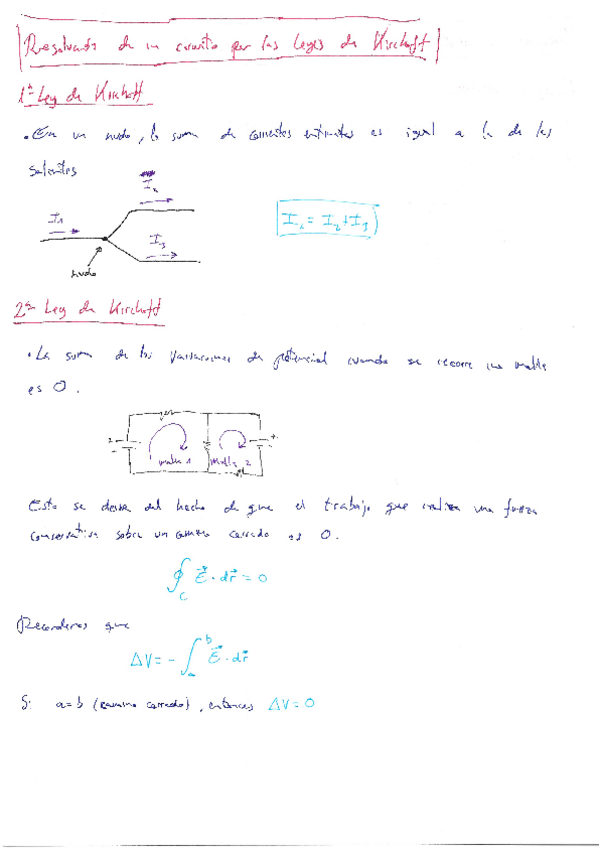 Resolución de un circuito por las Leyes de Kirchoff
1ª Ley de Kirchoff
• En un nudo, la suma de corrientes entrantes es igual a la de las
salientes
I₂
I₁
I₃
nudo
I₁ = I₂ + I₃
2ª Ley de Kirchoff
• La suma de las variaciones de potencial cuando se recorre una malla
es 0.
malla 1
malla 2
Esto se deriva del hecho de que el trabajo que realiza una fuerza
conservativa sobre un camino cerrado es 0.
∮_C E⃗ · dr⃗ = 0
Recordemos que
ΔV = - ∫_a^b E⃗ · dr⃗
Si a=b (camino cerrado), entonces ΔV = 0